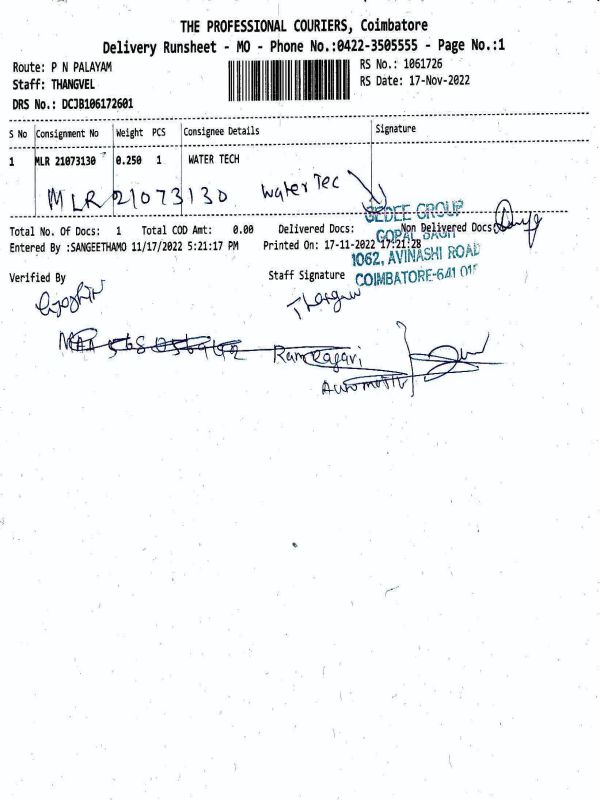 THE PROFESSIONAL COURIERS, Coimbatore
Delivery Runsheet - MO - Phone No.:0422-3505555 - Page No.:1
Route: P N PALAYAM RS No.: 1061726
Staff: THANGVEL RS Date: 17-Nov-2022
DRS No.: DCJB106172601
S No Consignment No Weight PCS Consignee Details Signature
1 MLR 21073130 0.250 1 WATER TECH
MLR 21073130 Water Tec
GEDEE GROUP
Total No. Of Docs: 1 Total COD Amt: 0.00 Delivered Docs: Non Delivered Docs:
GOPAL BAGH
Entered By :SANGEETHAMO 11/17/2022 5:21:17 PM Printed On: 17-11-2022 17:21:28
1062, AVINASHI ROAD
Verified By Staff Signature COIMBATORE-641 018